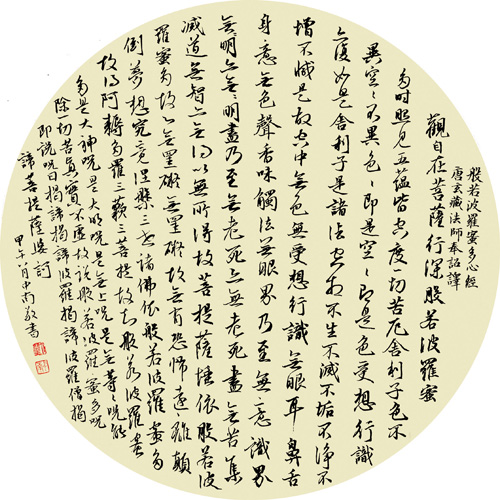 般若波羅蜜多心經
唐玄奘法師奉詔譯
觀自在菩薩行深般若波羅蜜
多时照見五蘊皆空度一切苦厄舍利子色不
異空々不異色々即是空々即是色受想行識
亦復如是舍利子是諸法空相不生不滅不垢不淨不
增不減是故空中無色無受想行識無眼耳鼻舌
身意無色聲香味觸法無眼界乃至無意識界
無明亦無無明盡乃至無老死亦無老死盡無苦集
滅道無智亦無得以無所得故菩提薩埵依般若波
羅蜜多故心無罣礙無罣礙故無有恐怖遠離顛
倒夢想究竟涅槃三世諸佛依般若波羅蜜多
故得阿耨多羅三藐三菩提故知般若波羅蜜
多是大神咒是大明咒是無上咒是無等々咒能
除一切苦真實不虛故說般若波羅蜜多咒
即說咒曰揭諦揭諦波羅揭諦波羅僧揭
諦菩提薩婆訶
甲午月中南敬書